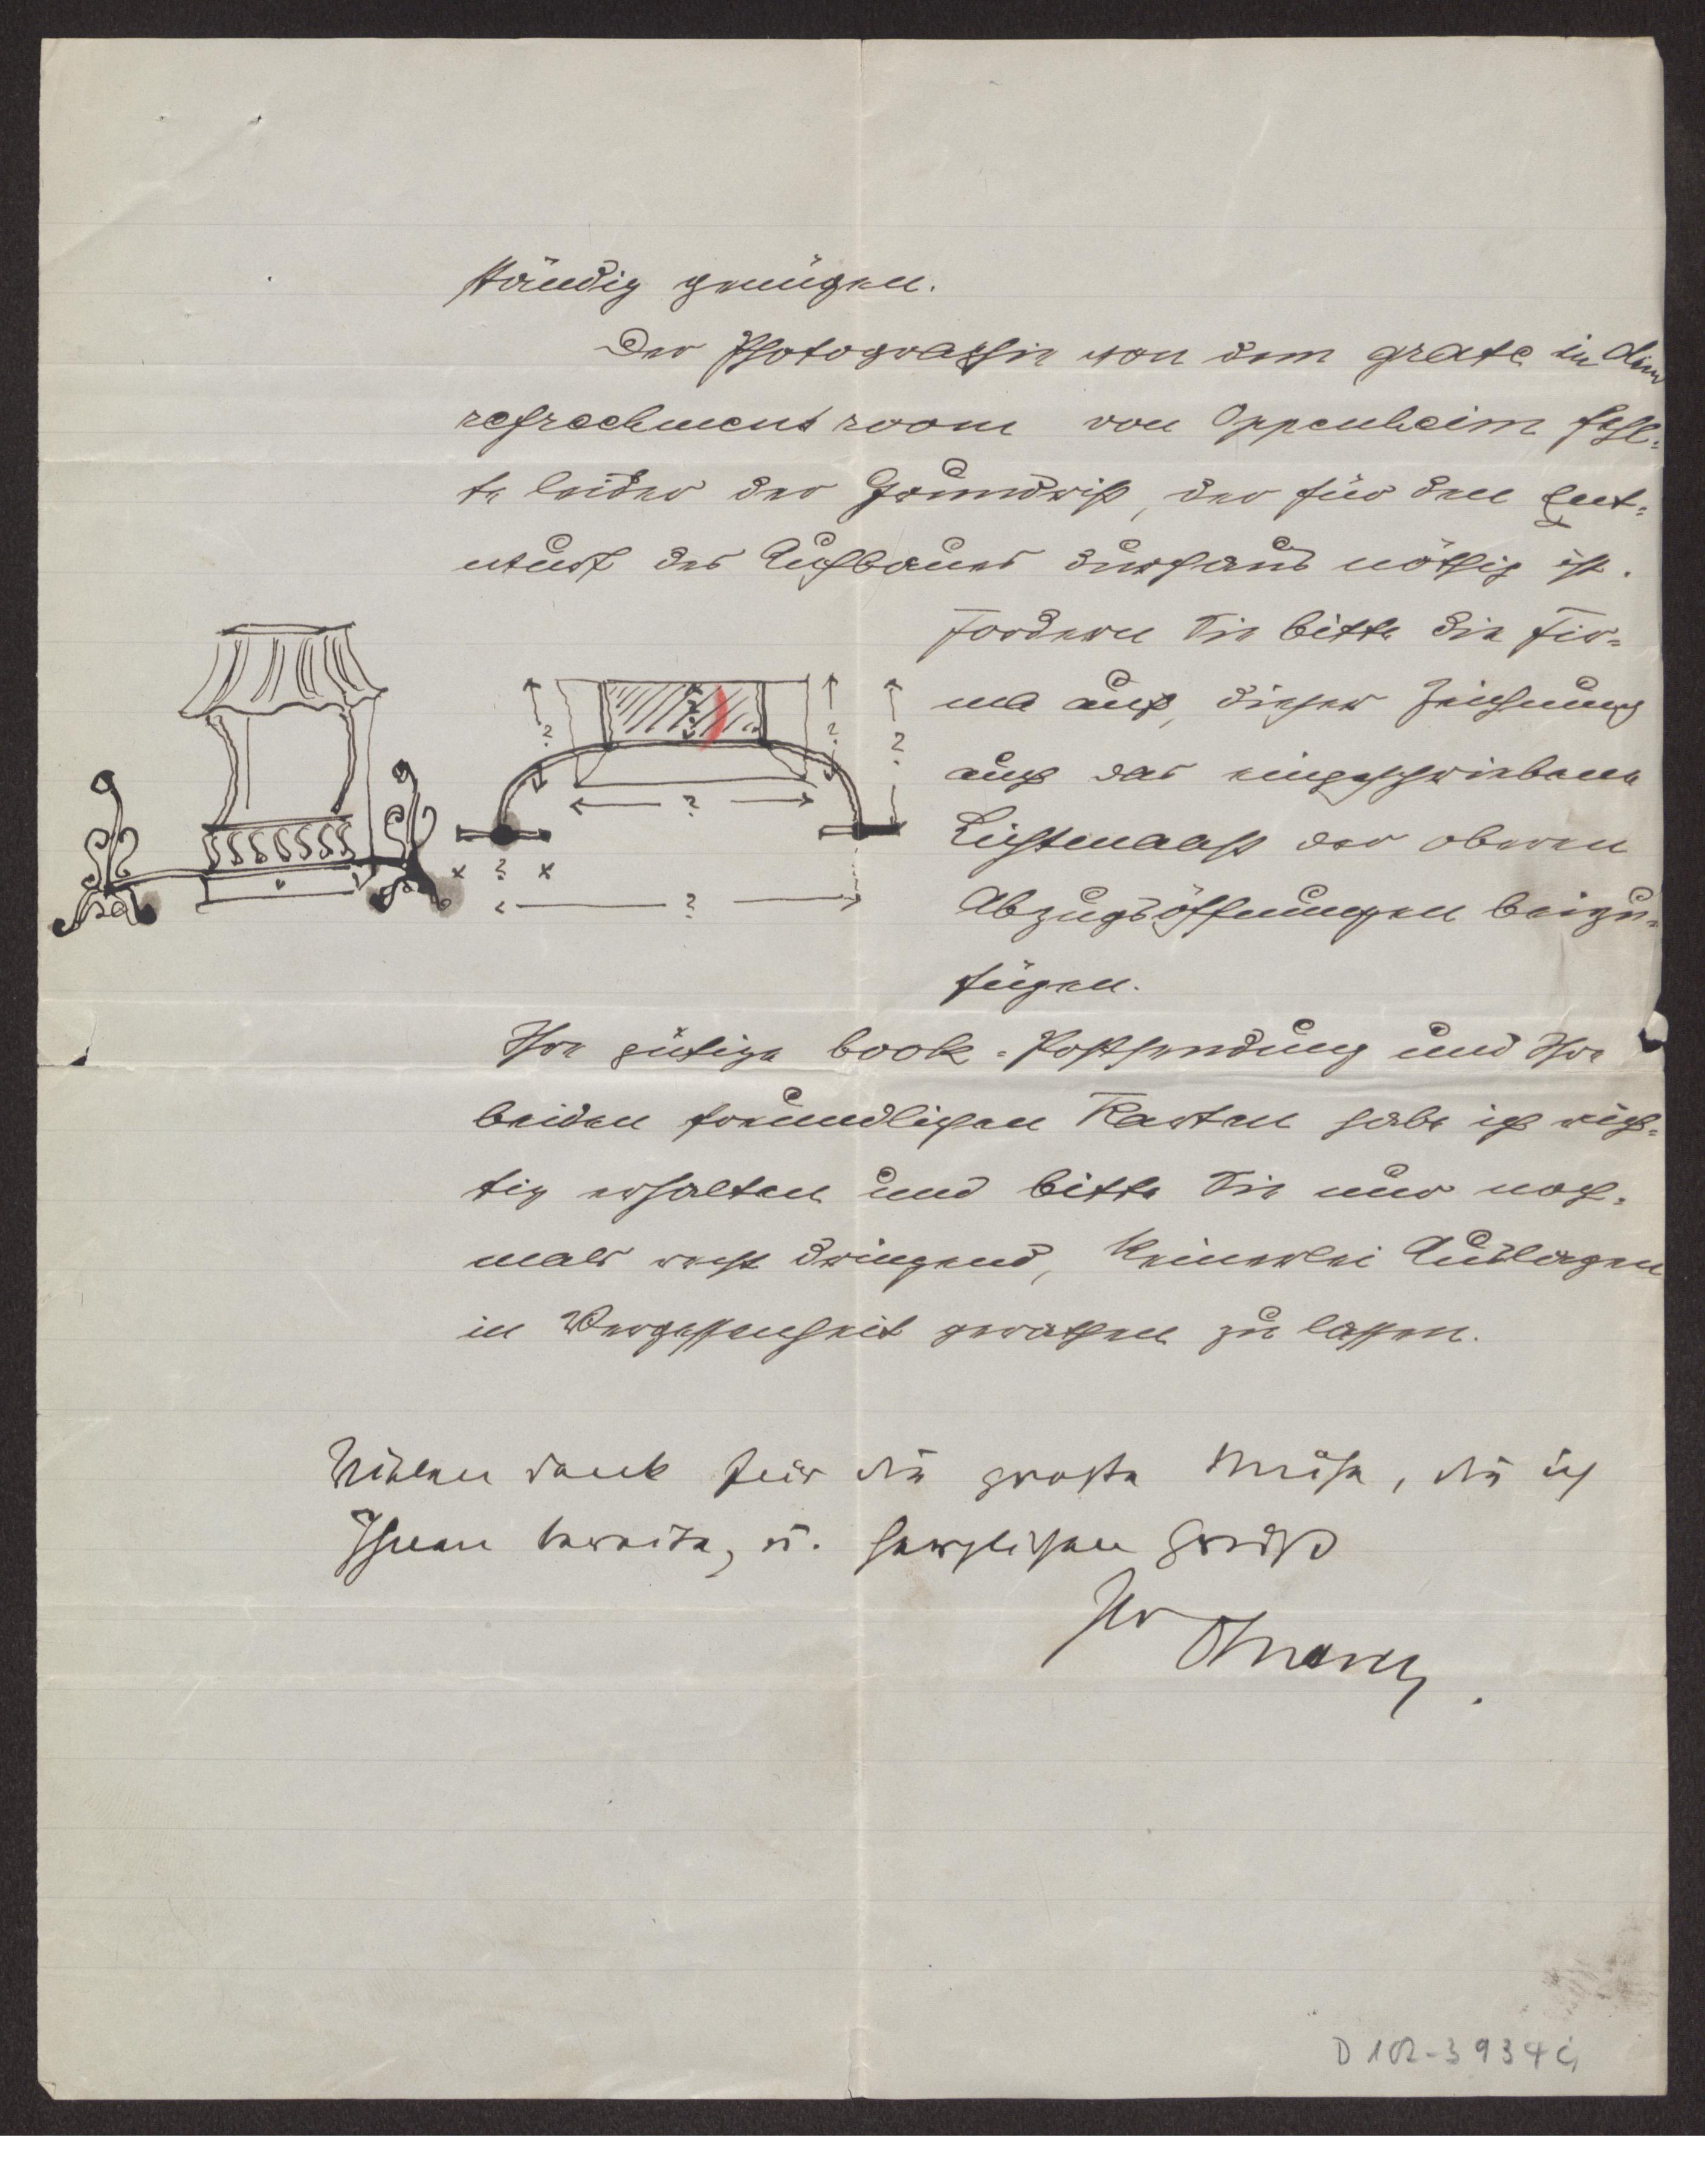 ständig genügen.
Der Photographie von dem grate in dem
refreshment room von Oppenheim fehl-
te leider der Grundriß, der für den Ent-
wurf des Aufbaues durchaus nöthig ist.
Fordern Sie bitte die Fir-
ma auf, dieser Zeichnung
auch das eingeschriebene
Lichtmaaß der oberen
Abzugsöffnungen beizu-
fügen.
? ? ? ?
?
x ? x
?
Ihre gütige book-Postsendung und Ihre
beiden freundlichen Karten habe ich rich-
tig erhalten und bitte Sie nur noch-
mals recht dringend, keinerlei Auslagen
in Vergessenheit gerathen zu lassen.
Vielen Dank für die große Mühe, die ich
Ihnen bereite, u. herzlichen Gruß
Ihr
D 102-3934